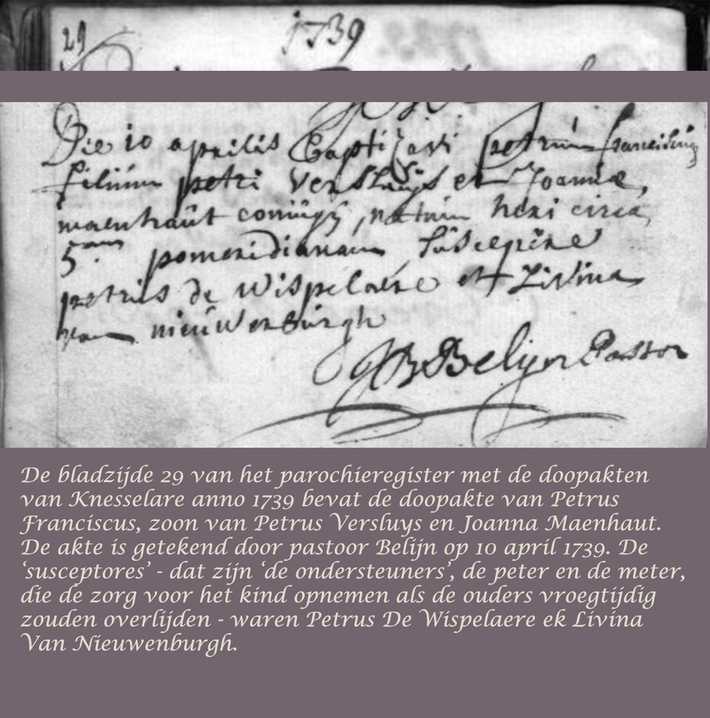 29 1739
Die 10 aprilis Baptisavi petrum franciscum
filium petri Versluys et Joannæ
maenhaut coniugū, natum heri circa
5am pomeridianam susceperē
petrus de Wispelaere et Livina
van nieuwenburgh
JB Belijn Pastor
De bladzijde 29 van het parochieregister met de doopakten
van Knesselare anno 1739 bevat de doopakte van Petrus
Franciscus, zoon van Petrus Versluys en Joanna Maenhaut.
De akte is getekend door pastoor Belijn op 10 april 1739. De
‘susceptores’ - dat zijn ‘de ondersteuners’, de peter en de meter,
die de zorg voor het kind opnemen als de ouders vroegtijdig
zouden overlijden - waren Petrus De Wispelaere ek Livina
Van Nieuwenburgh.